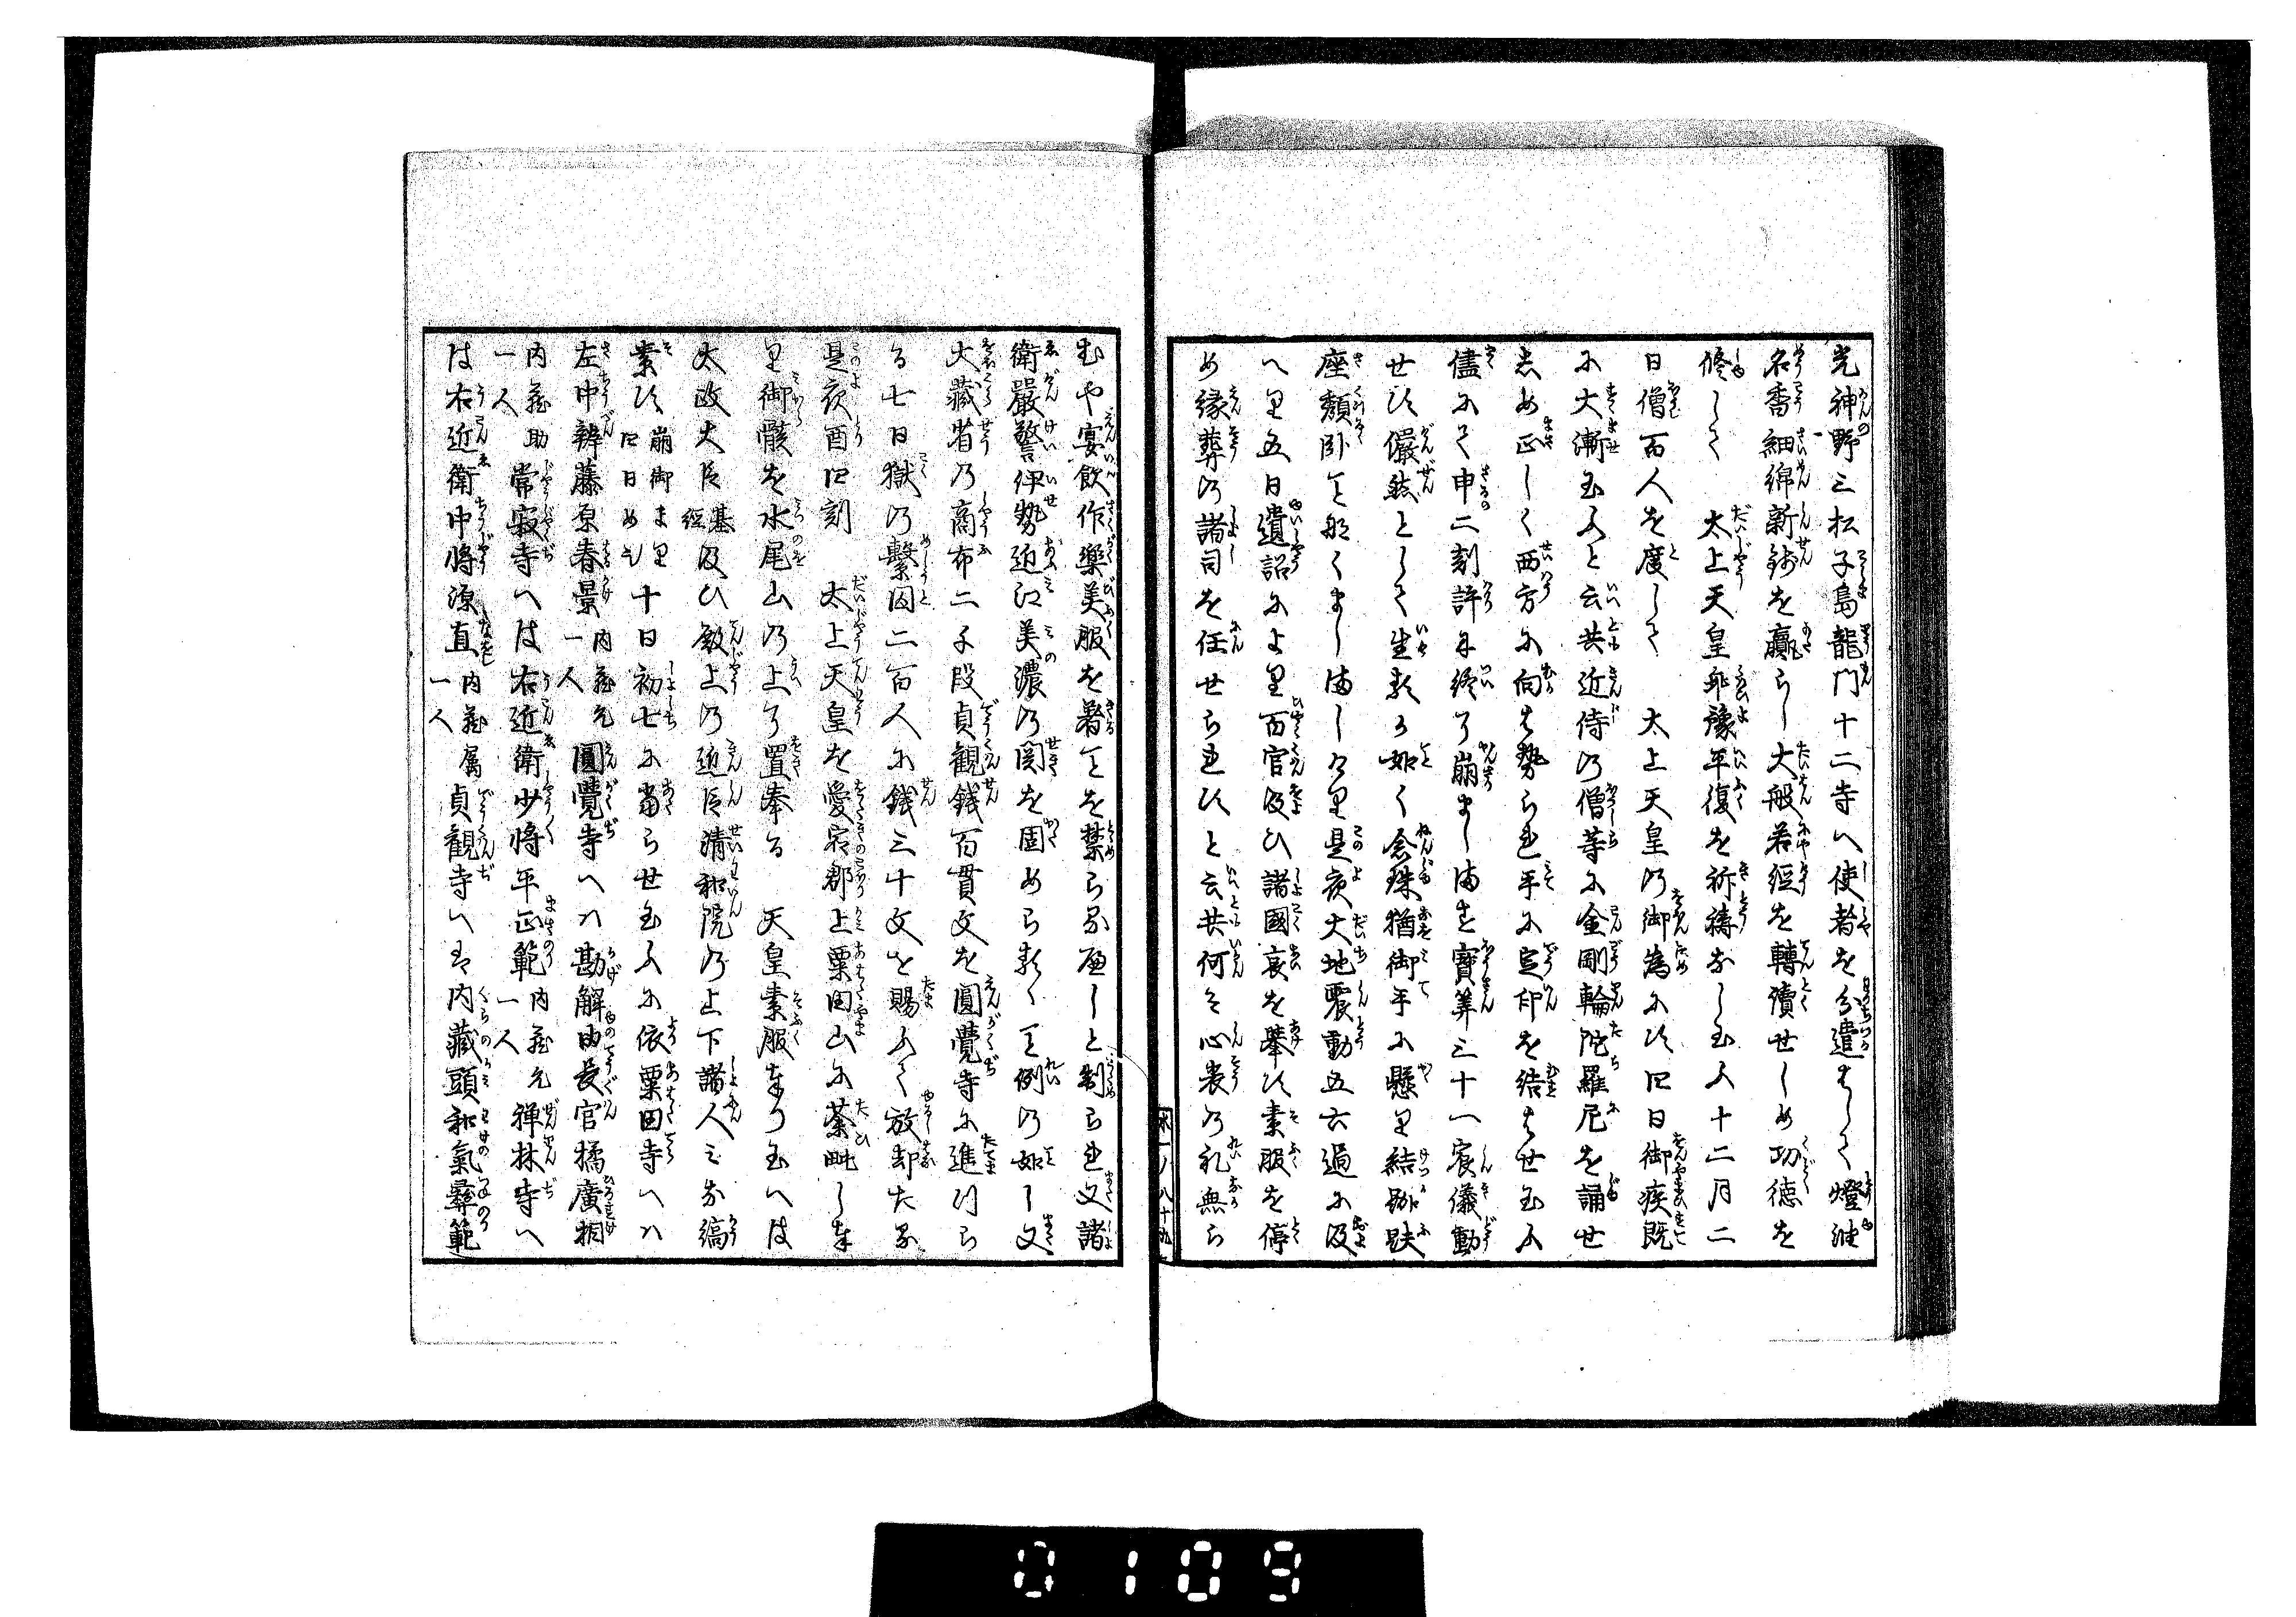 光神野三松子島龍門十二寺へ使者を分遣はして燈油
名香細綿新錢を贏らし大般若經を轉讀せしめ功德を
修して　太上天皇乖豫平復を祈禱なし玉ふ十二月二
日僧百人を度して　太上天皇の御為にす四日御疾既
に大漸玉ふと云共近侍の僧等に金剛輪陀羅尼を誦せ
しめ正しく西方に向はせられ手に定印を結はせ玉ふ
儘にて申二刻許に終に崩まします寶算三十一宸儀動
せす儼然として生るか如く念珠猶御手に懸り結跏趺
座頽臥と那くましましけり是夜大地震動五六過に及
へり五日遺詔により百官及ひ諸國哀を舉す素服を停
め縁葬の諸司を任せられすと云共何そ心喪の礼無ら
むや宴飲作樂美服を著ことを禁らる通しと制られ又諸
衛嚴警伊勢近江美濃の関を固めらるヽこと例の如し又
大藏省の商布二千段貞観錢百貫文を圓覺寺に進けら
る七日獄の繫囚二百人に錢三十文を賜ふて放却たる
是夜酉四刻　太上天皇を愛宕郡上粟田山に荼毗し奉
り御骸を水尾山の上に置奉る　天皇素服奉り玉へは
太政大臣基経及ひ殿上の近臣清和院の上下諸人みな縞
素す崩御まり四日めそ十日初七に當らせ玉ふに依粟田寺へハ
左中辨藤原春景内蔵允一人圓覺寺へハ勘解由長官橘廣相
内蔵助一人常寂寺へは右近衛少將平正範内蔵允一人禅林寺へ
は右近衛中將源直内蔵属一人貞観寺へは内藏頭和氣彝範
末一ノ八十九
0109